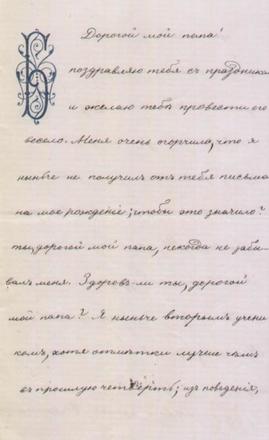 Дорогой мой папа!
поздравляю тебя съ праздникомъ
и желаю тебѣ провести его
весело. Меня очень огорчило, что я
нынче не получилъ отъ тебя письма
на мое рожденіе; чтобы это значило?
ты, дорогой мой папа, никогда не забы-
валъ меня. Здоровъ-ли ты, дорогой
мой папа? Я нынче вторымъ учени
комъ, хотя отмѣтки лучше чѣмъ
въ прошлую четверть; изъ поведенія,